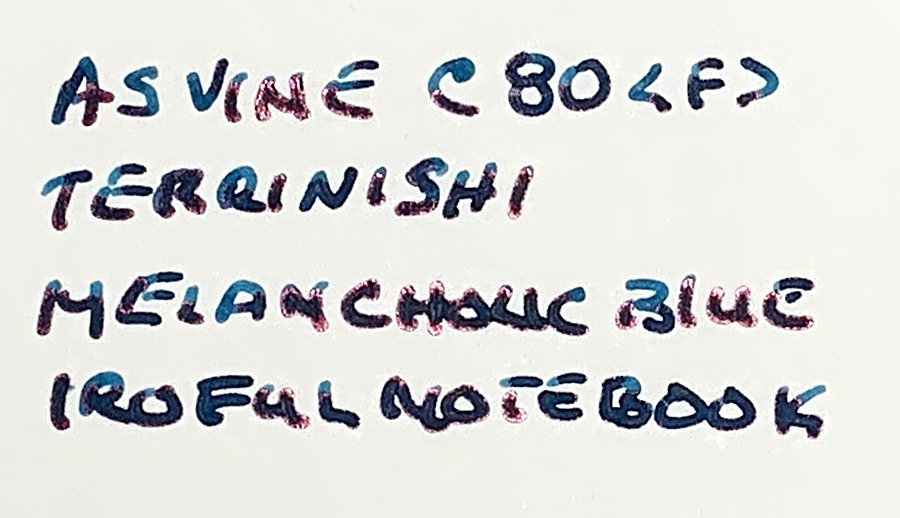 ASVINE C80 <F>
TERRINISHI
MELANCHOLIC BLUE
IROFUL NOTEBOOK